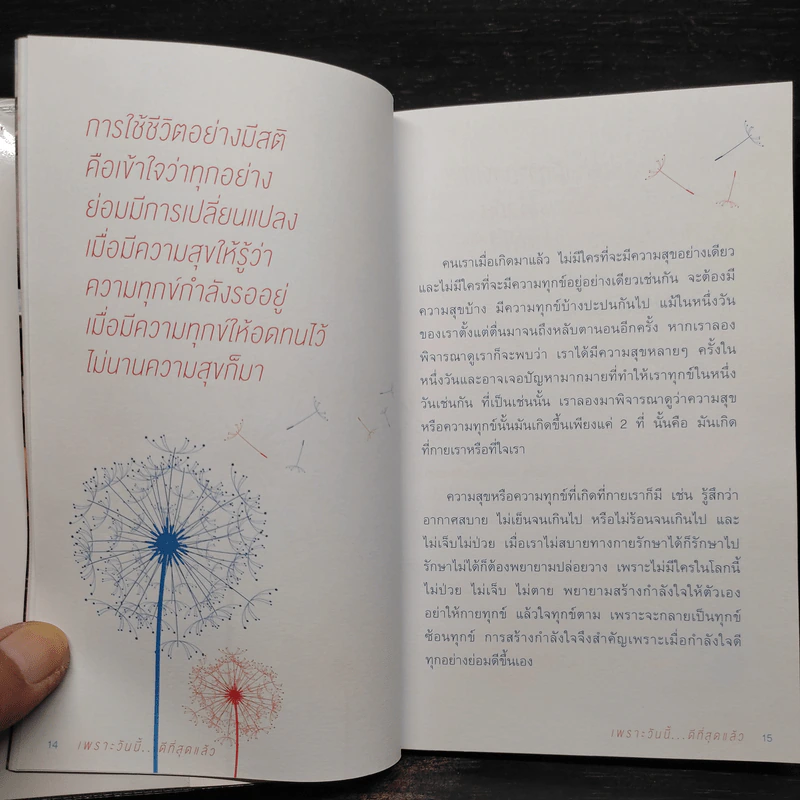 การใช้ชีวิตอย่างมีสติ
คือเข้าใจว่าทุกอย่าง
ย่อมมีการเปลี่ยนแปลง
เมื่อมีความสุขให้รู้ว่า
ความทุกข์กำลังรออยู่
เมื่อมีความทุกข์ให้อดทนไว้
ไม่นานความสุขก็มา
14 เพราะวันนี้...ดีที่สุดแล้ว
คนเราเมื่อเกิดมาแล้ว ไม่มีใครที่จะมีความสุขอย่างเดียว
และไม่มีใครที่จะมีความทุกข์อยู่อย่างเดียวเช่นกัน จะต้องมี
ความสุขบ้าง มีความทุกข์บ้างปะปนกันไป แม้ในหนึ่งวัน
ของเราตั้งแต่ตื่นมาจนถึงหลับตานอนอีกครั้ง หากเราลอง
พิจารณาดูเราก็จะพบว่า เราได้มีความสุขหลายๆ ครั้งใน
หนึ่งวันและอาจเจอปัญหามากมายที่ทำให้เราทุกข์ในหนึ่ง
วันเช่นกัน ที่เป็นเช่นนั้น เราลองมาพิจารณาดูว่าความสุข
หรือความทุกข์นั้นมันเกิดขึ้นเพียงแค่ 2 ที่ นั้นคือ มันเกิด
ที่กายเราหรือที่ใจเรา
ความสุขหรือความทุกข์ที่เกิดที่กายเราก็มี เช่น รู้สึกว่า
อากาศสบาย ไม่เย็นจนเกินไป หรือไม่ร้อนจนเกินไป และ
ไม่เจ็บไม่ป่วย เมื่อเราไม่สบายทางกายรักษาได้ก็รักษาไป
รักษาไม่ได้ก็ต้องพยายามปล่อยวาง เพราะไม่มีใครในโลกนี้
ไม่ป่วย ไม่เจ็บ ไม่ตาย พยายามสร้างกำลังใจให้ตัวเอง
อย่าให้กายทุกข์ แล้วใจทุกข์ตาม เพราะจะกลายเป็นทุกข์
ซ้อนทุกข์ การสร้างกำลังใจจึงสำคัญเพราะเมื่อกำลังใจดี
ทุกอย่างย่อมดีขึ้นเอง
เพราะวันนี้...ดีที่สุดแล้ว 15